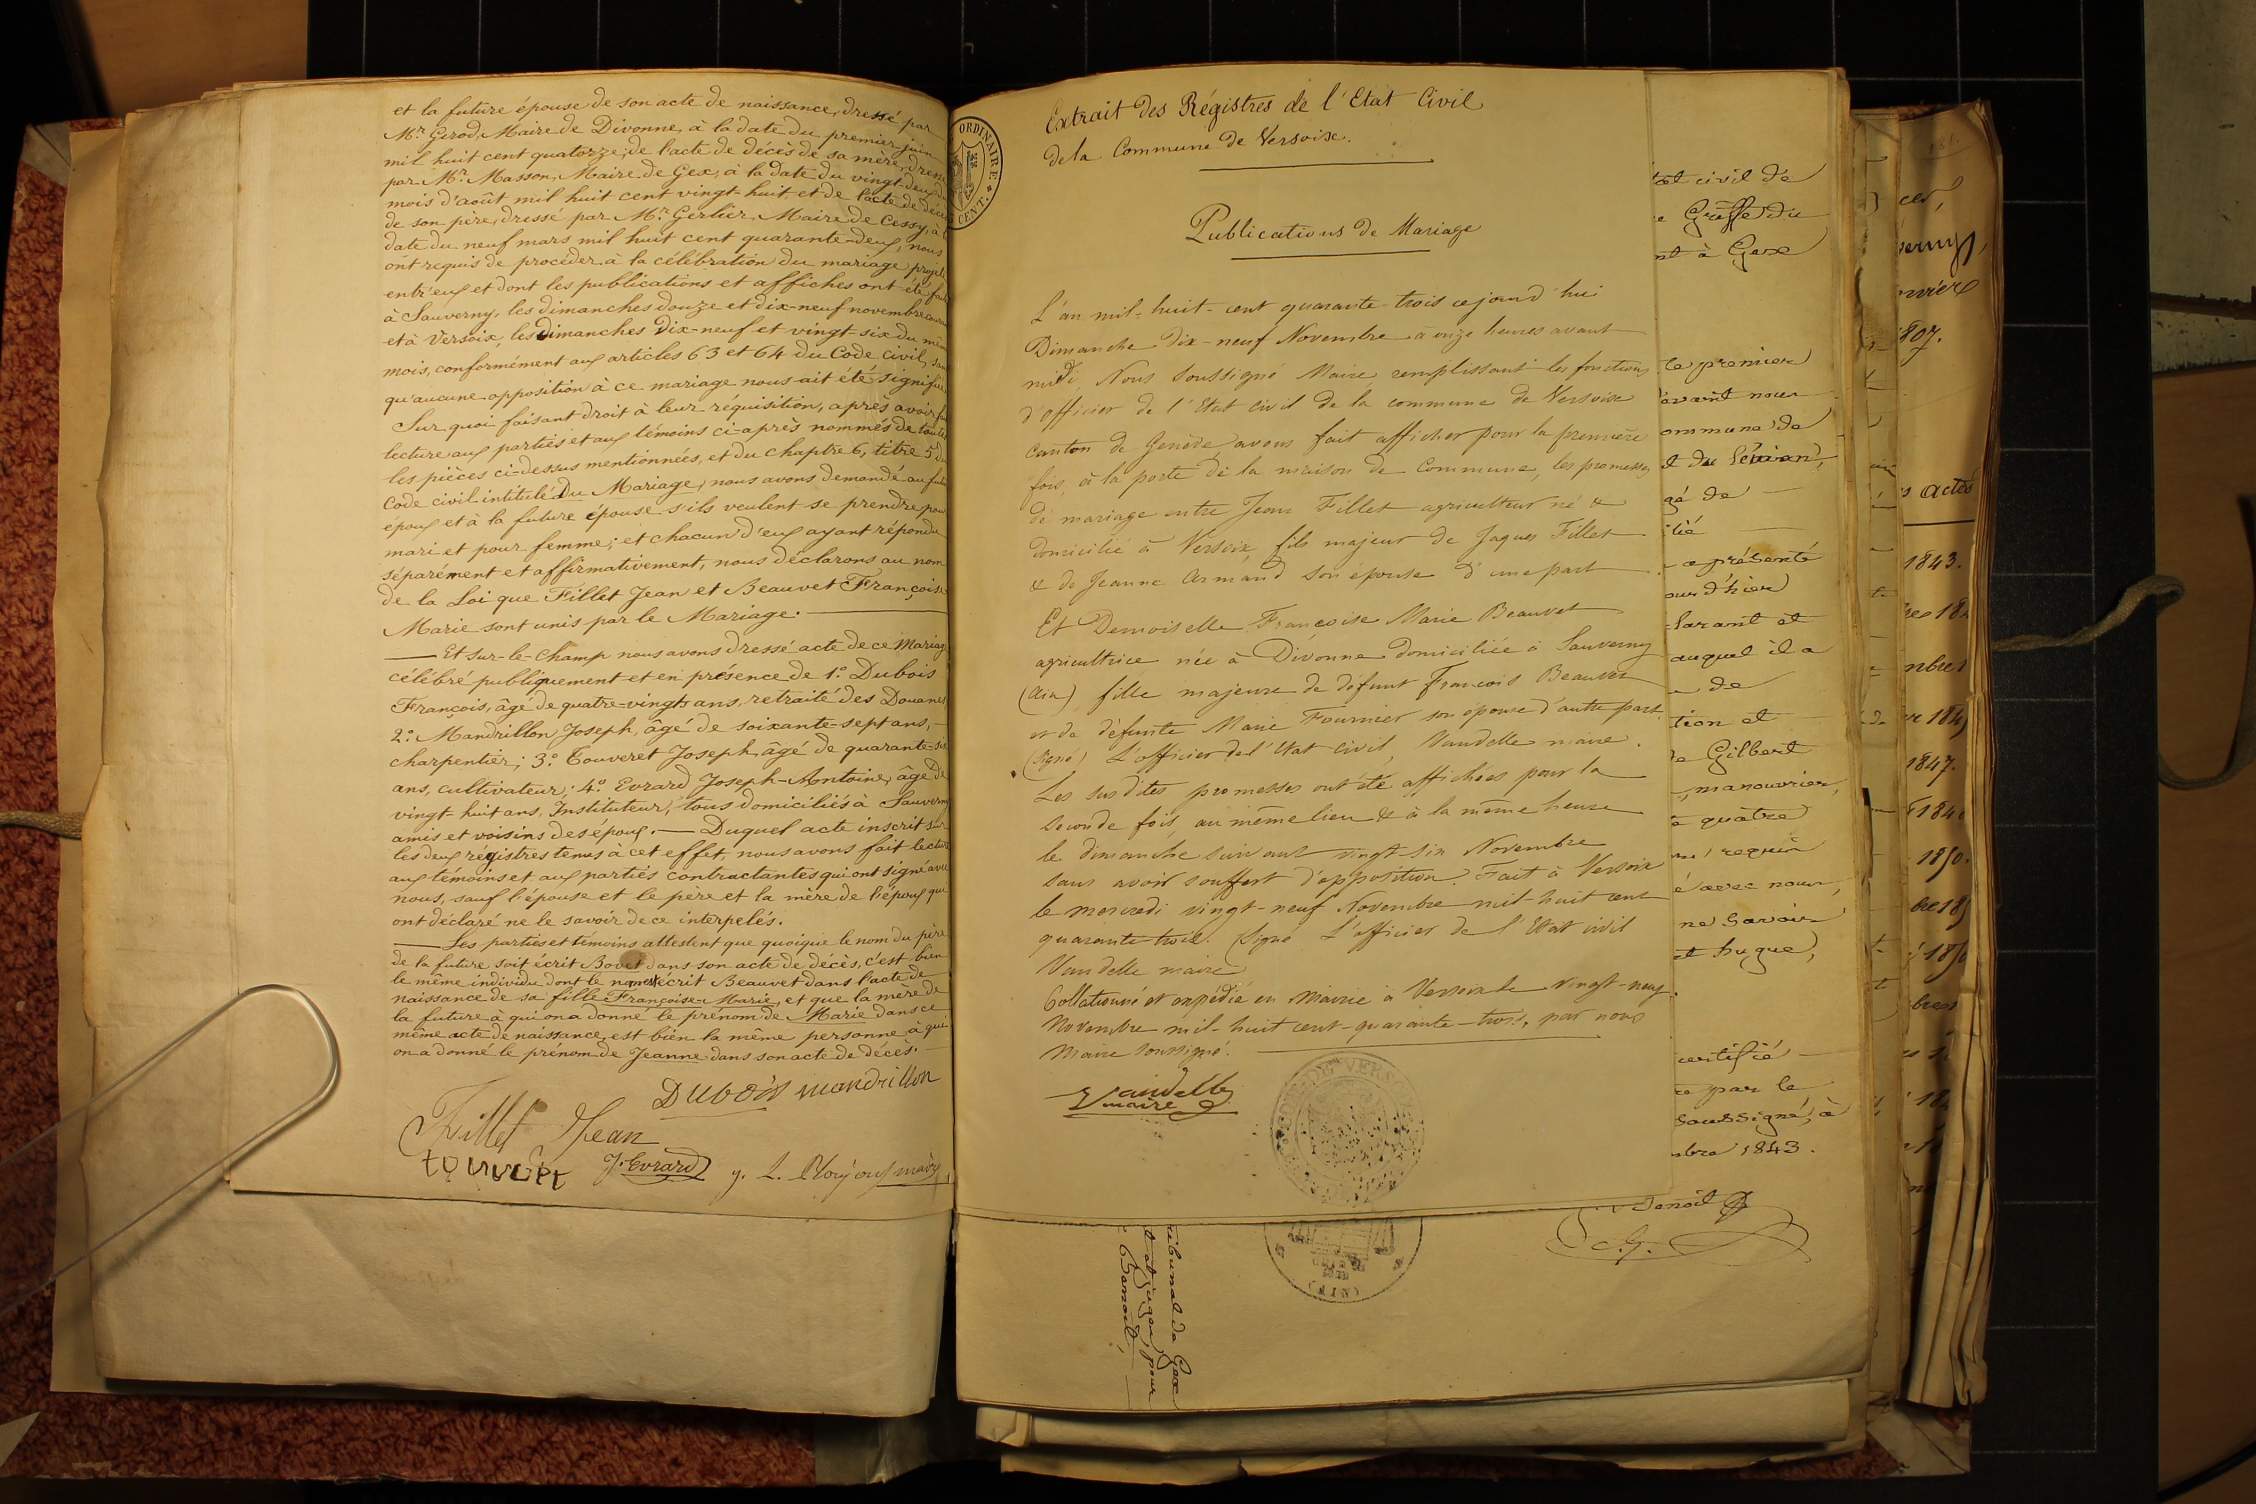 et la future épouse de son acte de naissance, dressé par
Mr. Gerod, Maire de Divonne, à la date du premier juin
mil huit cent quatorze; de l'acte de décès de sa mère, dressé
par Mr. Masson, Maire de Gex, à la date du vingt-deux du
mois d'août mil huit cent vingt-huit, et de l'acte de décès
de son père, dressé par Mr. Gerlier, Maire de Cessy, à la
date du neuf mars mil huit cent quarante-deux, nous
ont requis de procéder à la célébration du mariage projeté
entr'eux et dont les publications et affiches ont été faites
à Sauverny, les dimanches douze et dix-neuf novembre
et à Versoix, les dimanches dix-neuf et vingt-six du même
mois, conformément aux articles 63 et 64 du Code civil, sans
qu'aucune opposition à ce mariage nous ait été signifiée
Sur quoi faisant droit à leur réquisition, après avoir fait
lecture aux parties et aux témoins ci-après nommés de toutes
les pièces ci-dessus mentionnées, et du chapitre 6, titre 5 du
Code civil intitulé du Mariage, nous avons demandé au futur
époux et à la future épouse s'ils veulent se prendre pour
mari et pour femme; et chacun d'eux ayant répondu
séparément et affirmativement, nous déclarons au nom
de la Loi que Fillet Jean et Beauvet Françoise
Marie sont unis par le Mariage.
Et sur-le-champ nous avons dressé acte de ce Mariage
célébré publiquement et en présence de 1.º Dubois
François, âgé de quatre-vingts ans, retraité des Douanes
2.º Mandrillon Joseph, âgé de soixante-sept ans,
charpentier; 3.º Touveret Joseph âgé de quarante-six
ans, cultivateur; 4.º Evrard Joseph-Antoine, âgé de
vingt-huit ans, Instituteur; tous domiciliés à Sauverny
amis et voisins des époux. — Duquel acte inscrit sur
les deux régistres tenus à cet effet, nous avons fait lecture
aux témoins et aux parties contractantes qui ont signé avec
nous, sauf l'épouse et le père et la mère de l'époux qui
ont déclaré ne le savoir de ce interpelés.
Les parties et témoins attestent que quoique le nom du père
de la future soit écrit Bovet dans son acte de décès, c'est bien
le même individu dont le nom est écrit Beauvet dans l'acte de
naissance de sa fille Françoise-Marie, et que la mère de
la future à qui on a donné le prénom de Marie dans ce
même acte de naissance, est bien la même personne à qui
on a donné le prénom de Jeanne dans son acte de décès.
Dubois mandrillon
Fillet Jean
J. Evrard
ORDINAIRE
CENT.
Extrait des Régistres de l'Etat Civil
de la Commune de Versoix.
Publications de Mariage
L'an mil-huit-cent quarante trois cejourd'hui
Dimanche Dix-neuf Novembre à onze heures avant
midi, Nous Soussigné Maire remplissant les fonctions
d'officier de l'Etat civil de la commune de Versoix
canton de Genève, avons fait afficher pour la première
fois, à la porte de la maison de Commune, les promesses
de mariage entre Jean Fillet agriculteur né &
domicilié à Versoix, fils majeur de Jaques Fillet
& de Jeanne Armand son épouse d'une part
Et Demoiselle Françoise Marie Beauvet
agricultrice née à Divonne domiciliée à Sauverny
(Ain) fille majeure de défunt François Beauvet
et de défunte Marie Fournier son épouse d'autre part.
(Signé) L'officier de l'Etat civil, Vandelle maire.
Les susdites promesses ont été affichées pour la
seconde fois, au même lieu & à la même heure
le dimanche suivant vingt six Novembre
sans avoir souffert d'opposition. Fait à Versoix
le mercredi vingt-neuf Novembre mil-huit cent
quarante-trois. (Signé L'officier de l'Etat civil
Vandelle maire
Collationné et expédié en Mairie à Versoix le Vingt-neuf
Novembre mil-huit cent-quarante-trois, par nous
Maire soussigné.
Vandelle
maire
état civil de
Greffe du
à Gex
le premier
avant nous
commune de
âgé de
a présenté
jour d'hier
auquel il a
de
Gilbert
manouvrier,
quatre
requis
avec nous,
ne savoir
certifié
par le
soussigné, à
1843.
Benoît
Tribunal de Gex
pour
(AIN)
1807.
actes
1843.
1847.
1850.